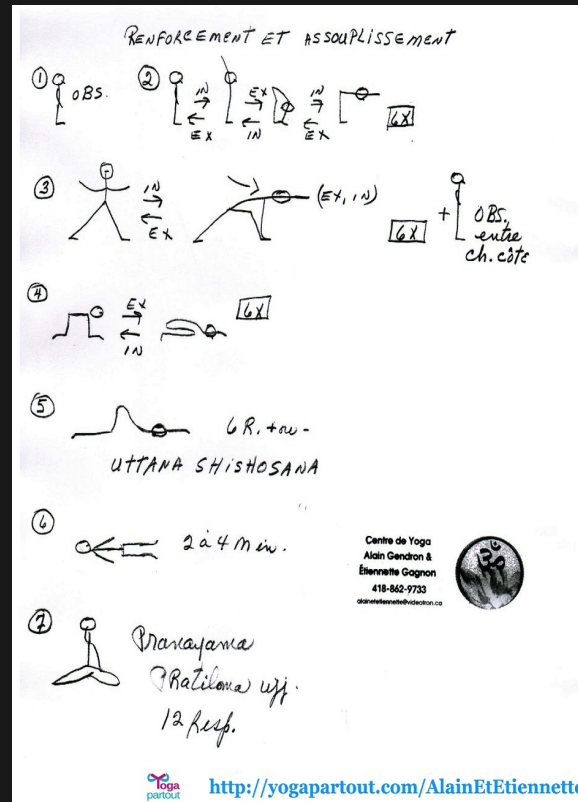 RENFORCEMENT ET ASSOUPLISSEMENT
1 OBS.
2 IN EX IN
EX IN EX
6X
3 IN (EX, IN)
EX
6X + OBS.
entre
ch. côté
4 EX 6X
IN
5 6 R. +ou -
UTTANA SHISHOSANA
6 2 à 4 Min.
Centre de Yoga
Alain Gendron &
Étiennette Gagnon
418-862-9733
alainetetiennette@videotron.ca
7 Pranayama
PRatiloma ujj.
12 Resp.
Yoga partout
http://yogapartout.com/AlainEtEtiennette